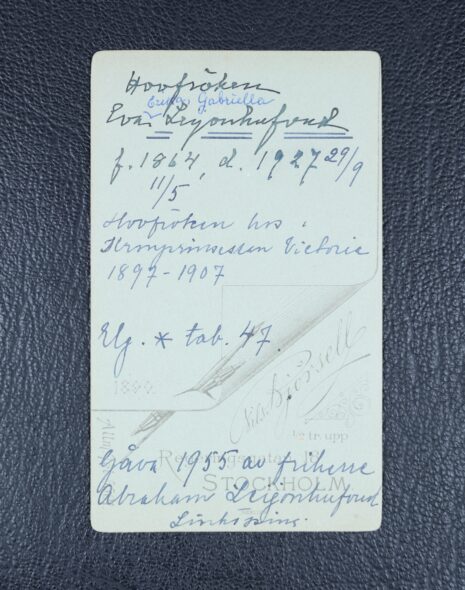 Hovfröken
Gabriella
Eva Leijonhufvud
f. 1864, d. 1927 29/9
11/5
Hovfröken hos
Kronprinsessan Victoria
1897-1907
Elg. * tab. 47.
1899
Nils Björsell
½ tr. upp
Regeringsgatan 18
STOCKHOLM
Gåva 1955 av friherre
Abraham Leijonhufvud
Linköping.